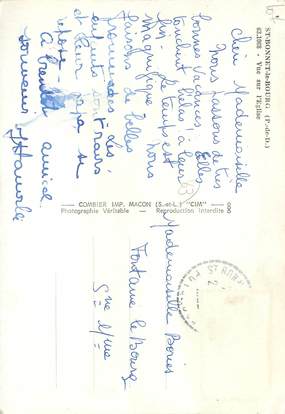 ST-BONNET-le-BOURG (P.-de-D.)
63.1.003 - Vue sur l'Eglise
Chère Mademoiselle
Nous passons de très
bonnes vacances. Elles
tendent hélas, à leur
fin. Le temps est
magnifique. Nous
faisons de belles
promenades. Les
enfants sont ravis
et leur papa se
repose.
A bientôt amical
souvenir
COMBIER IMP. MACON (S.-et-L.) "CIM"
Photographie Véritable - Reproduction Interdite
Mademoiselle
Fontaine le Bourg
Sne Mme
ST BONN